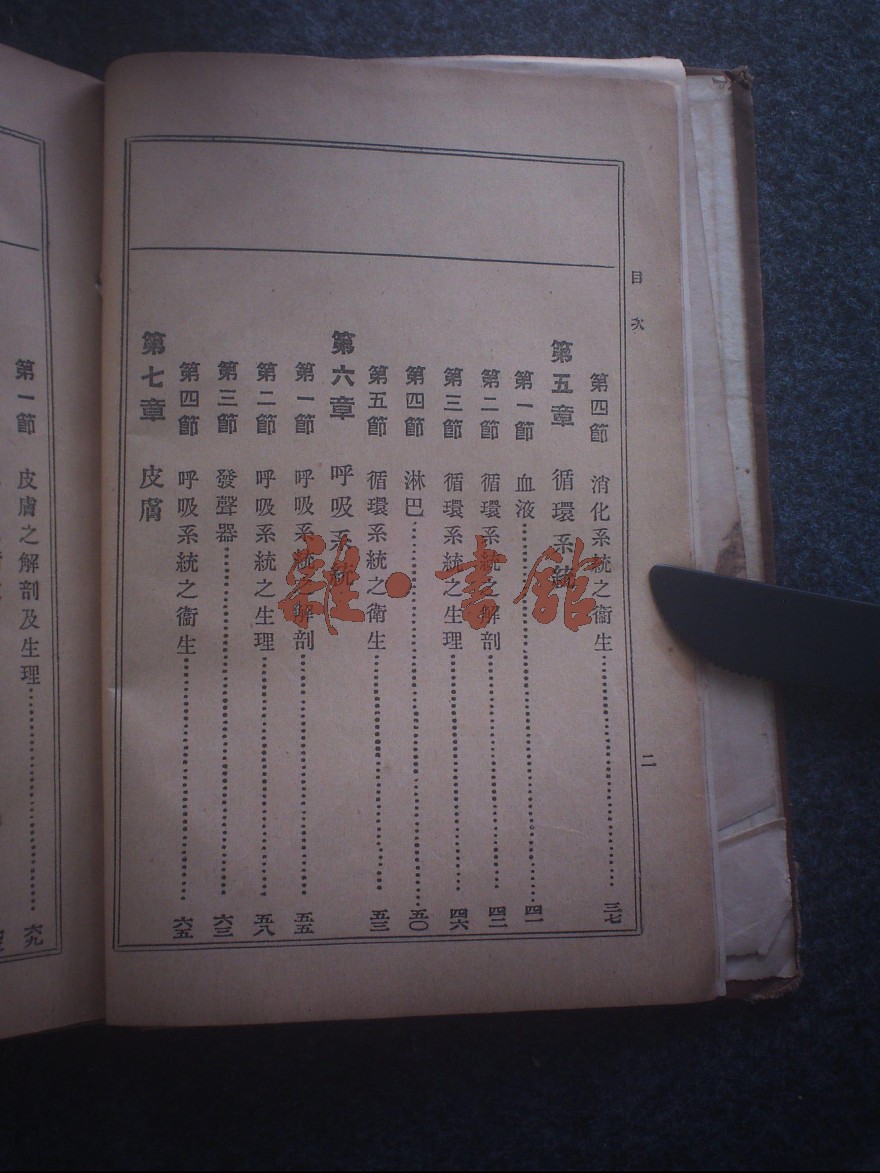 目次
第四節 消化系統之衞生……三七
第五章 循環系統
第一節 血液……四一
第二節 循環系統之解剖……四二
第三節 循環系統之生理……四六
第四節 淋巴……五〇
第五節 循環系統之衞生……五三
第六章 呼吸系統
第一節 呼吸系統之解剖……五五
第二節 呼吸系統之生理……五八
第三節 發聲器……六三
第四節 呼吸系統之衞生……六五
第七章 皮膚
二
第一節 皮膚之解剖及生理……六九
雜·書館